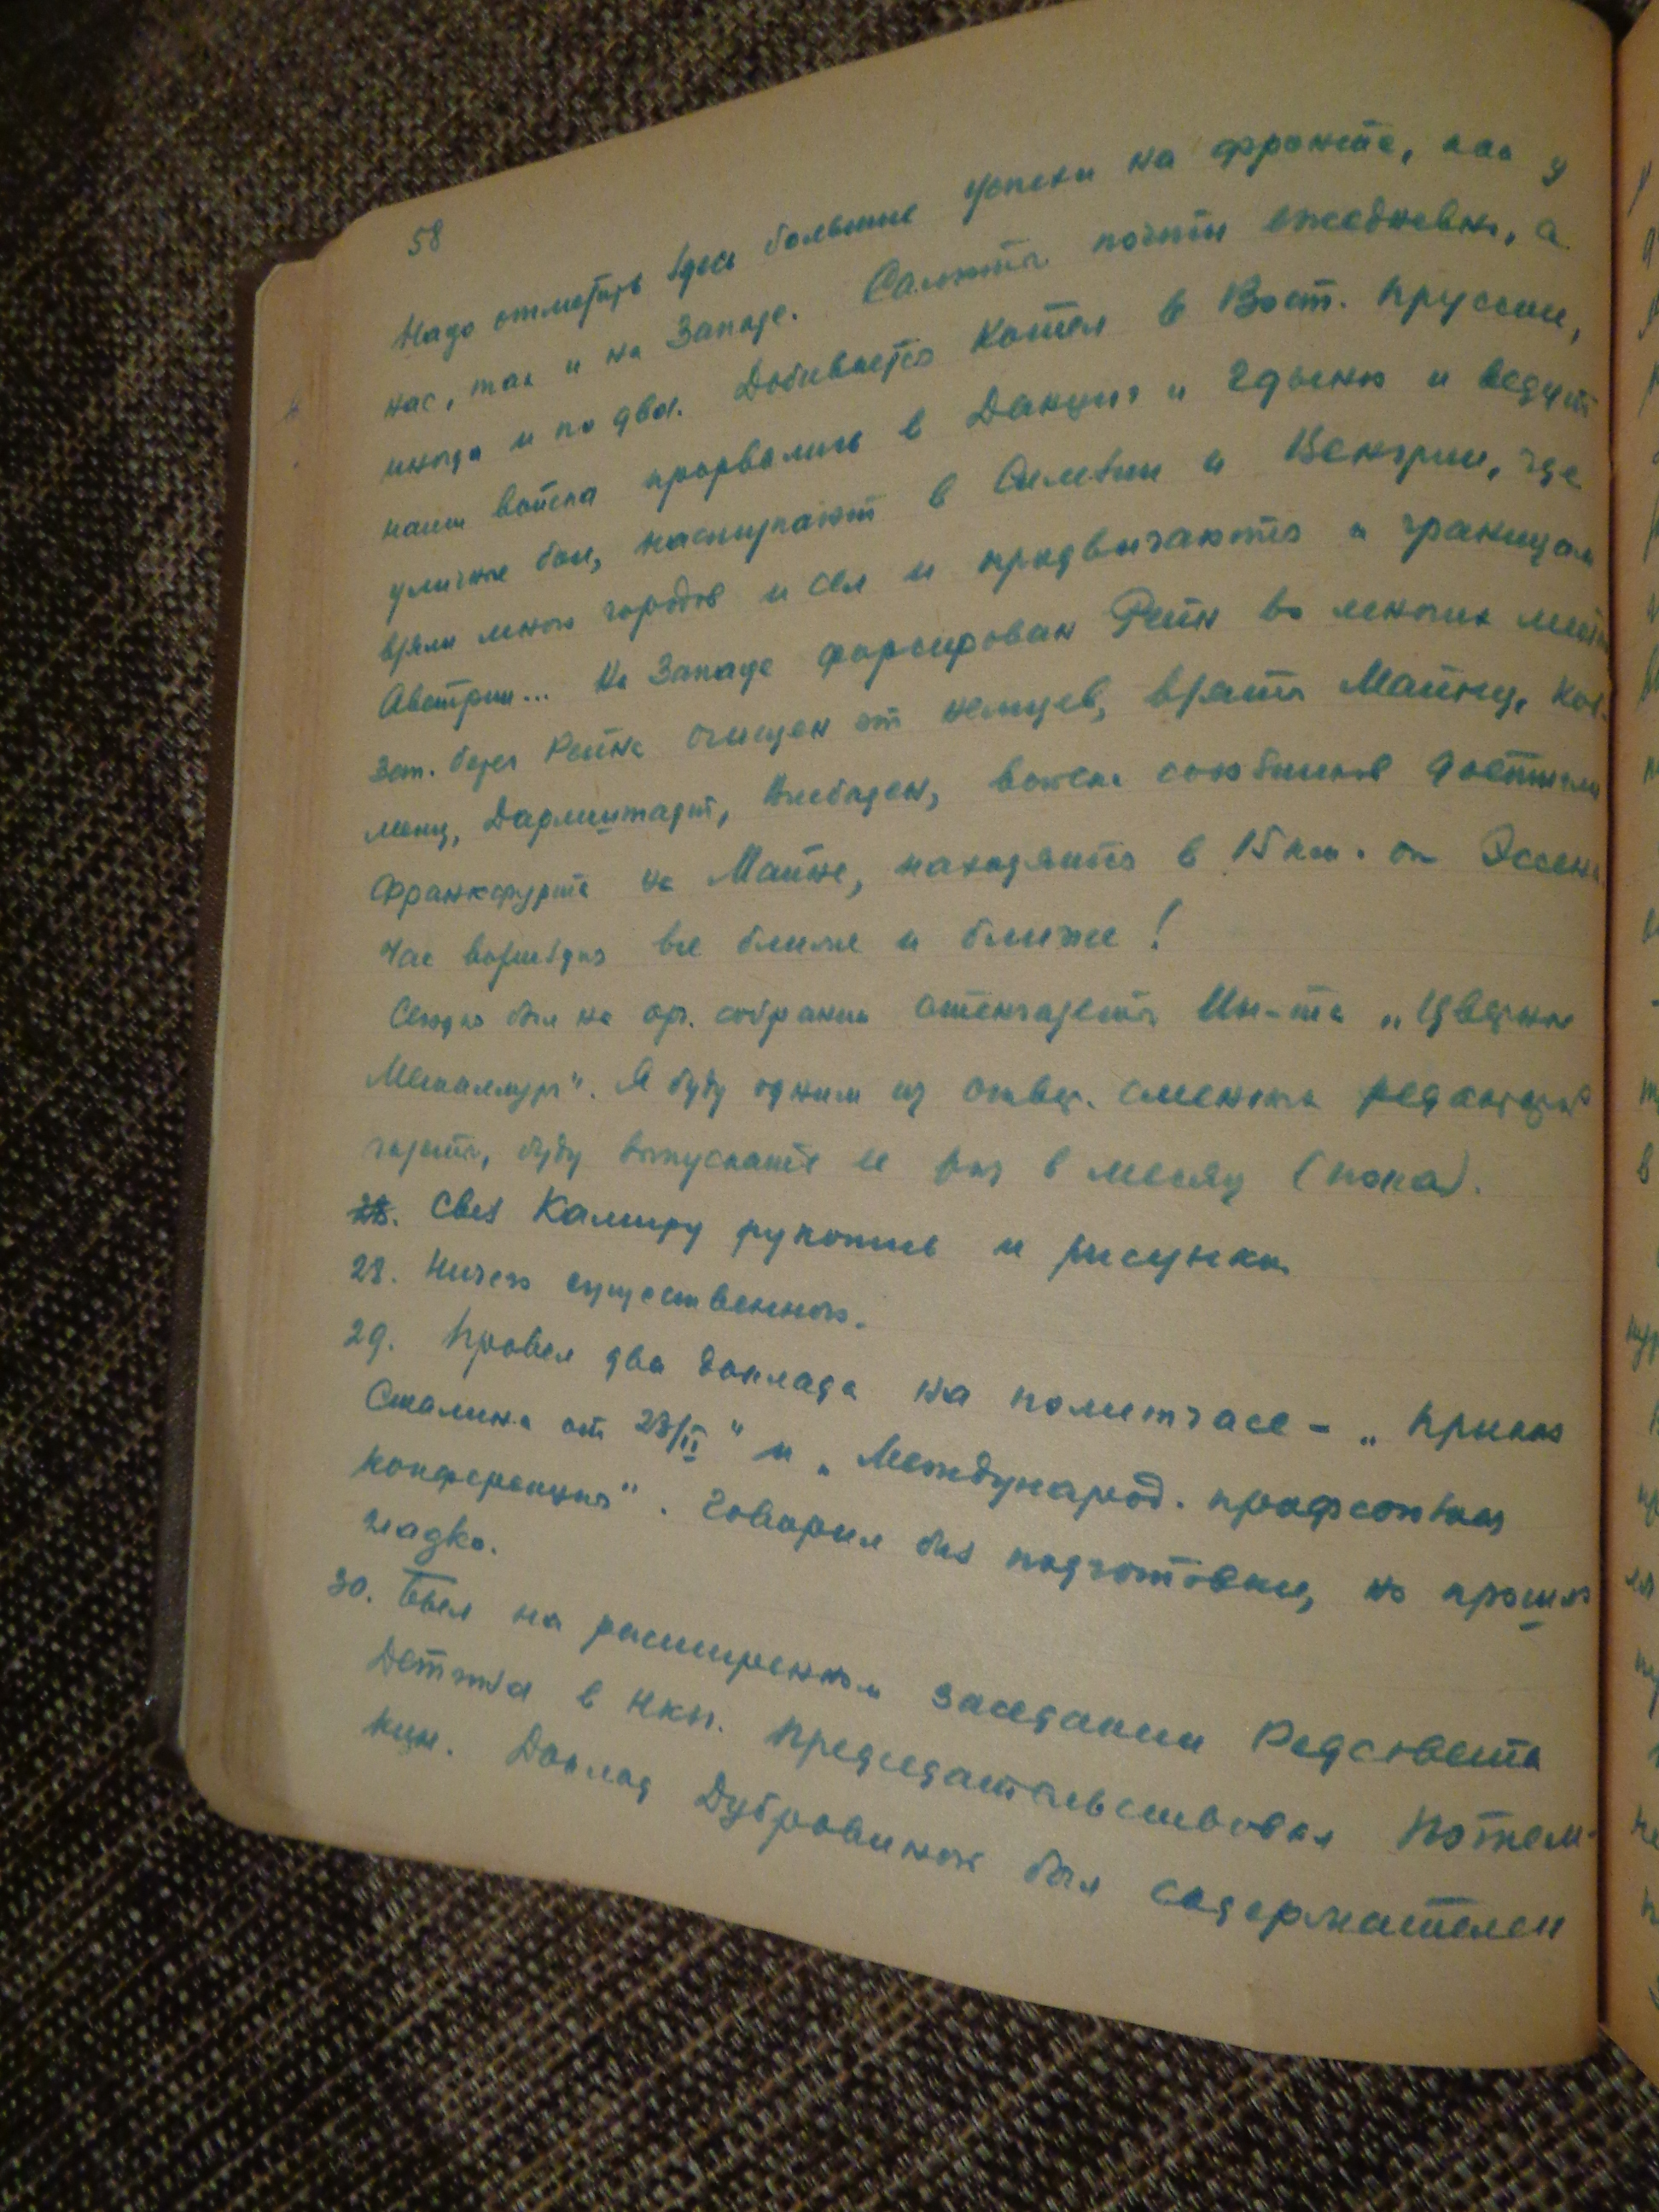 58
Надо отметить здесь большие успехи на фронте, как у
нас, так и на Западе. Салюты почти ежедневны, а
иногда и по два. Добивается котел в Вост. Пруссии,
наши войска прорвались в Данциг и Гдыню и ведут
уличные бои, наступают в Силезии и Венгрии, где
взяли много городов и сел и продвигаются к границам
Австрии... На Западе форсирован Рейн во многих местах
Зап. берег Рейна очищен от немцев, взяты Майнц, Коб-
ленц, Дармштадт, Висбаден, войска союзников достигли
Франкфурта на Майне, находятся в 15 км. от Эссена.
Час возмездия все ближе и ближе!
Сегодня был на ор. собрании стенгазеты Ин-та „Цветные
Металлы". Я буду одним из ответ. сменных редакторов
газеты, буду выпускать ее раз в месяц (пока).
28. Свез Камиру рукопись и рисунки.
28. Ничего существенного.
29. Провел два доклада на политчасе – „Приказ
Сталина от 23/II" и „Международ. профсоюзная
конференция". Говорил без подготовки, но прошло
гладко.
30. Был на расширенном заседании Редсовета
Детгиза в НКП. Председательствовал Потем-
кин. Доклад Дубровиной был содержателен